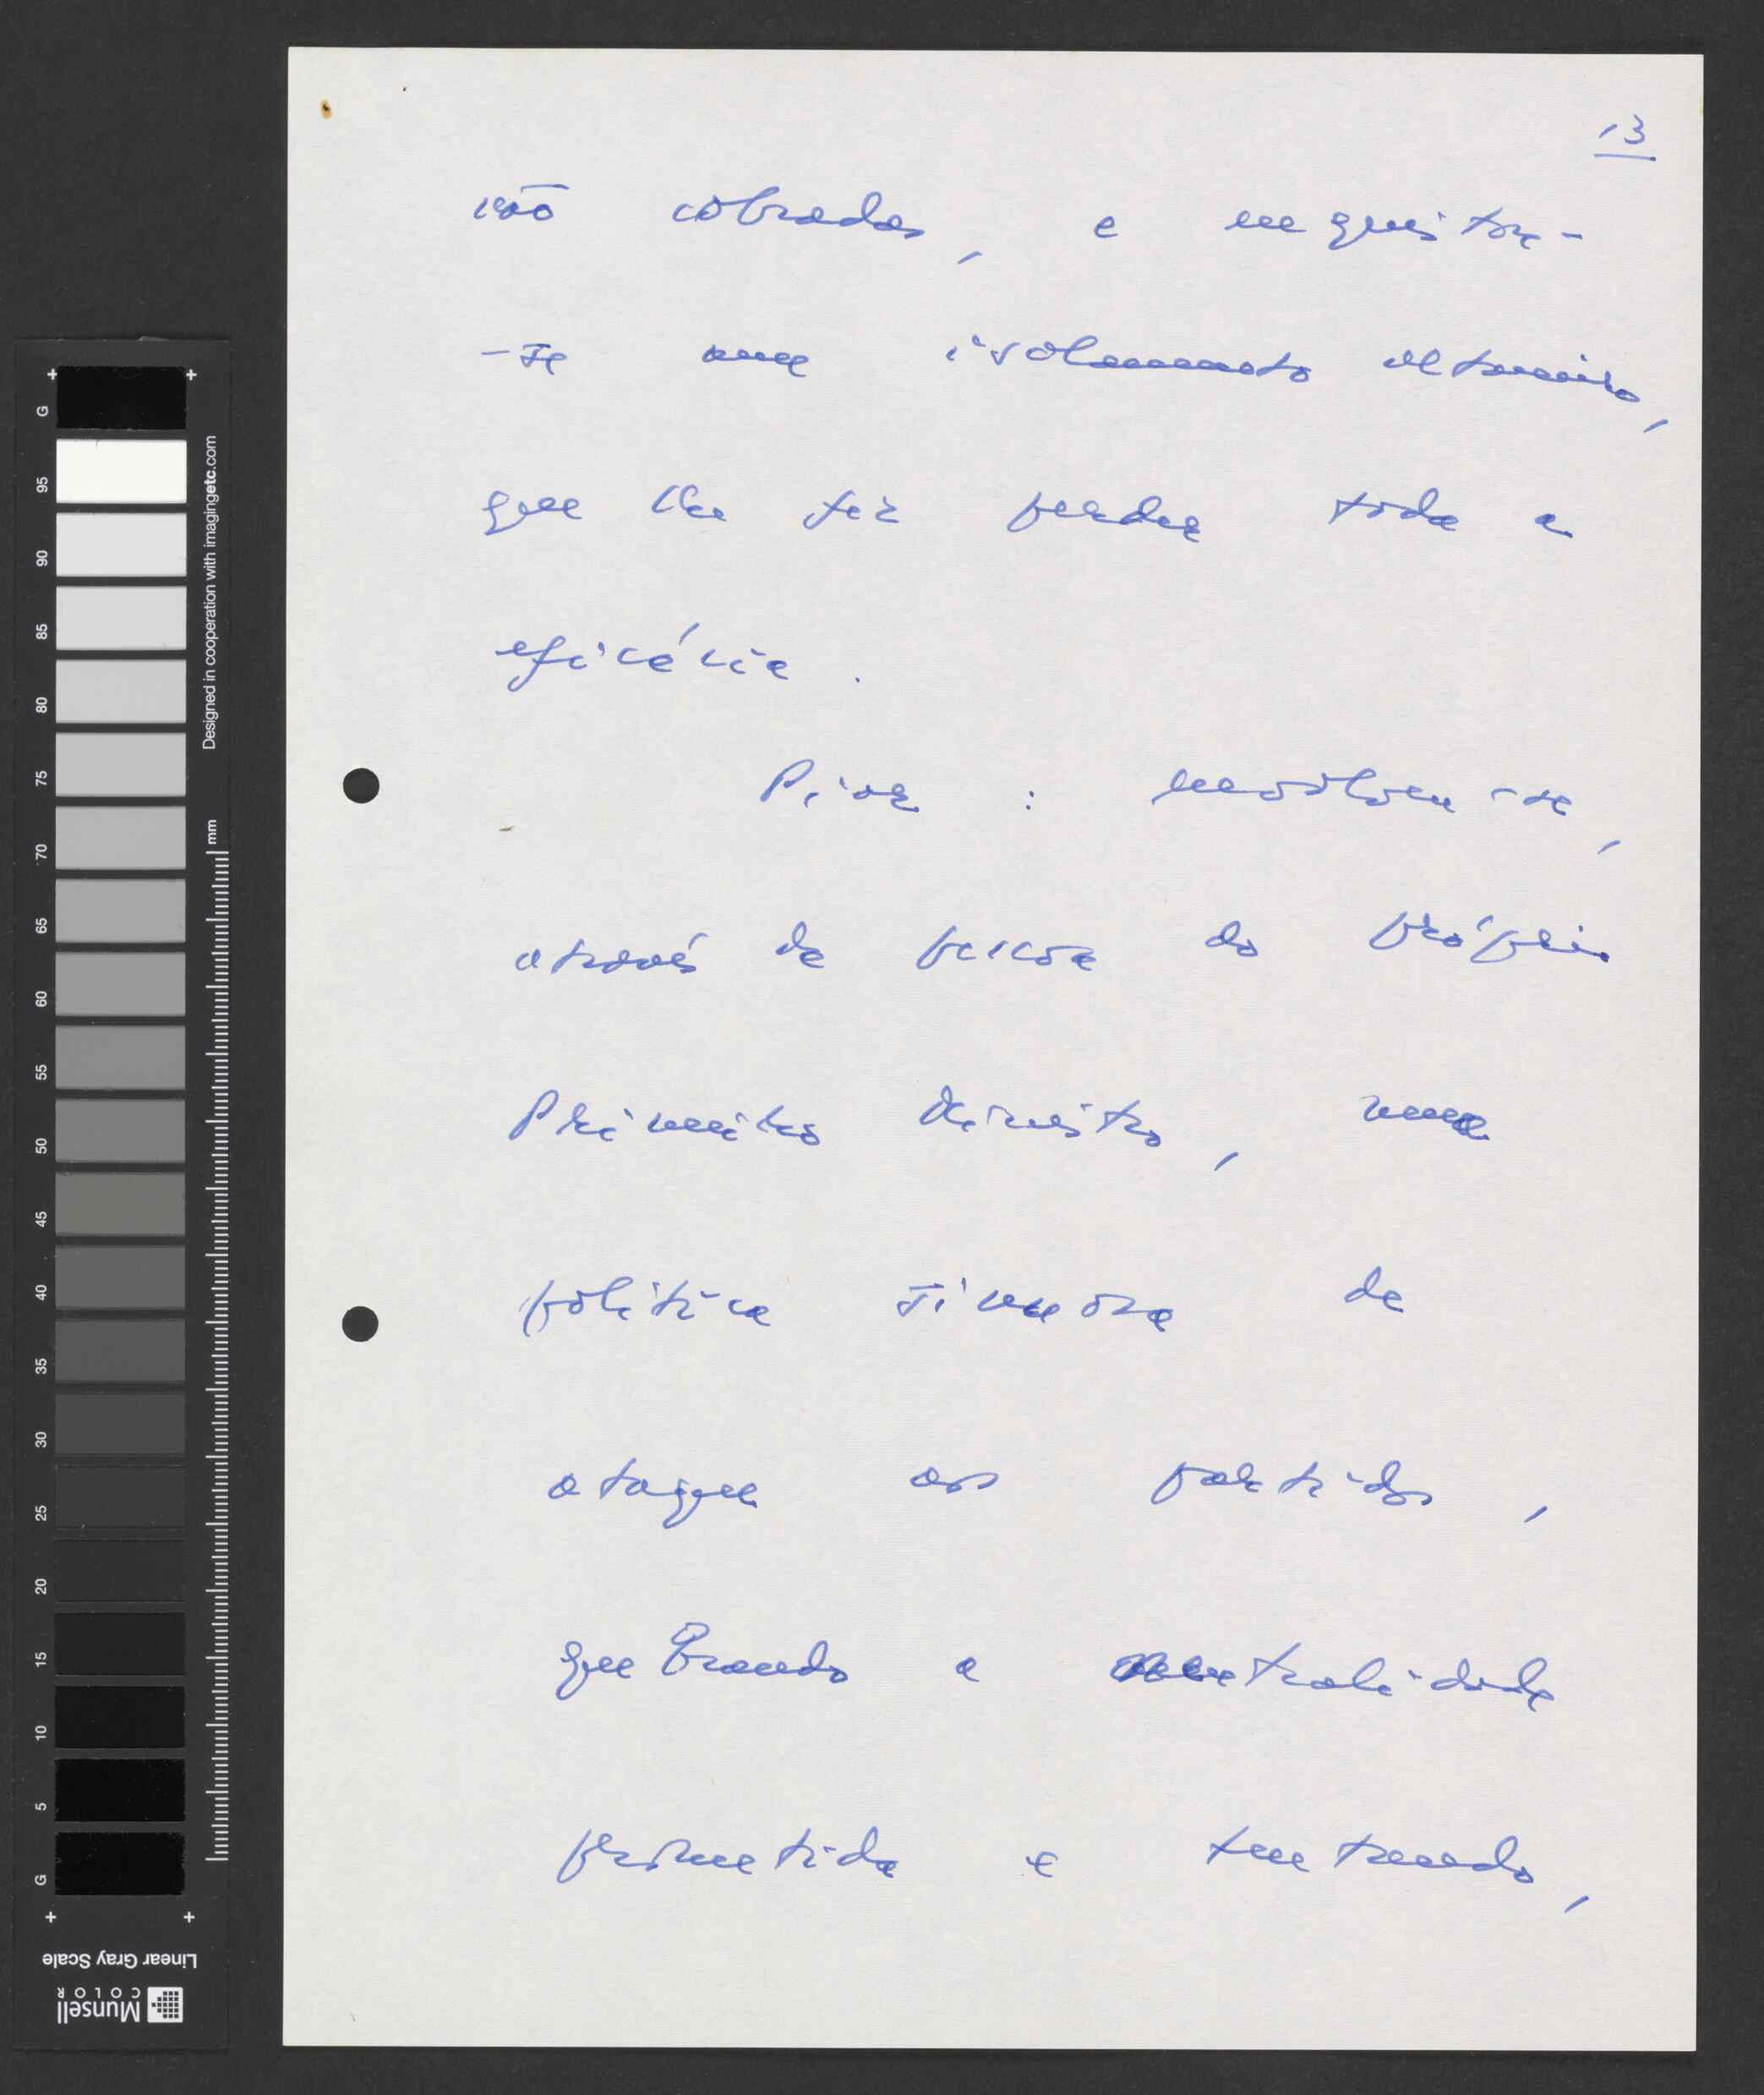 13
não cobradas, e enquista-
-se num isolamento altaneiro,
que lhe fez perder toda a
eficácia.
Pior: envolveu-se,
através da pessoa do próprio
Primeiro Ministro, numa
política sinuosa de
ataque aos partidos,
quebrando a neutralidade
prometida e tentando,
G 95 90 85 80 75 70 65 60 55 50 45 40 35 30 25 20 15 10 5 G
Designed in cooperation with imagingetc.com
mm
Linear Gray Scale
Munsell
COLOR